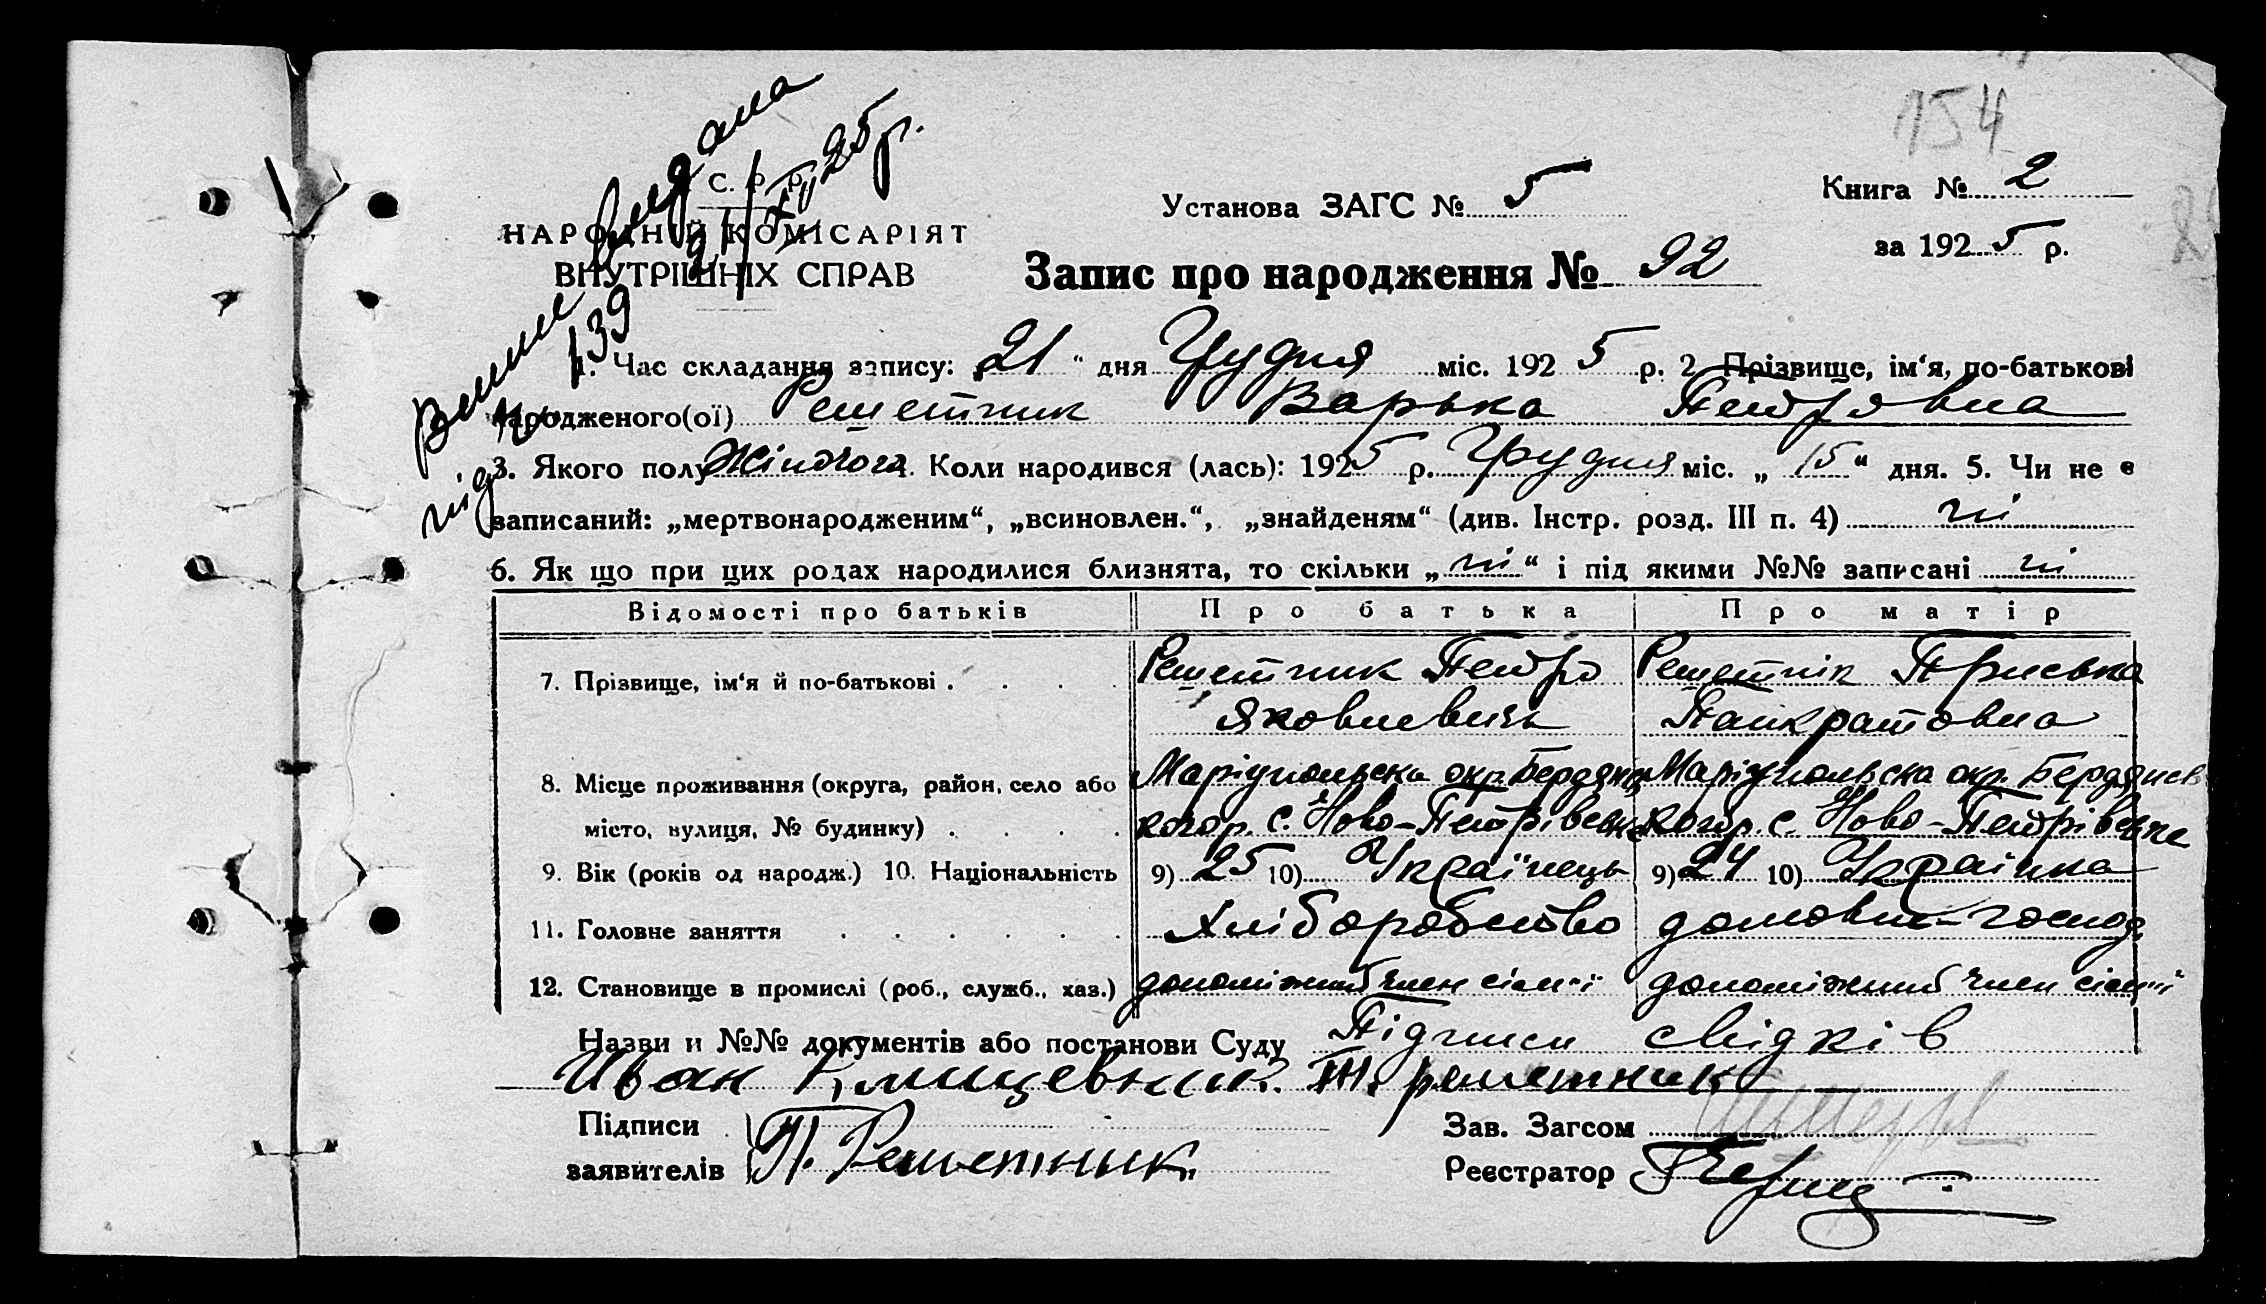 154
С. Р. Р.
НАРОДНІЙ КОМІСАРІЯТ
ВНУТРІШНІХ СПРАВ
Виписка видана
21/XII 25 р.
під № 139
Установа ЗАГС № 5
Книга № 2
за 1925 р.
Запис про народження № 92
1. Час складання запису: „21“ дня Грудня міс. 1925 р. 2. Прізвище, ім‘я, по-батькові
народженого(ої) Решетник Варька Петровна
3. Якого полу Жіночого 4. Коли народився (лась): 1925 р. Грудня міс. „15“ дня. 5. Чи не є
записаний: „мертвонародженим“, „всиновлен.“, „знайденям“ (див. Інстр. розд. III п. 4) ні
6. Як що при цих родах народилися близнята, то скільки „ні“ і під якими №№ записані ні
Відомості про батьків Про батька Про матір
7. Прізвище, ім‘я й по-батькові . . . . Решетник Петро РешетнікПриська
Яковлевичь Панкратовна
8. Місце проживання (округа, район, село або Маріупольска окр. Бердянс Маріупольска окр. Бердянсь
місто, вулиця, № будинку) . . . . кого р. с. Ново-Петрівське кого р. с. Ново-Петрівське
9. Вік (років од народж.) 10. Національність 9) 25 10) Українець 9) 24 10) Українка
11. Головне заняття . . . . . . Хліборобство домовие-господ.
12. Становище в промислі (роб., служб., хаз.) допоміжний член сімї допоміжний член сімї
Назви и №№ документів або постанови Суду Підписи свідків
Иван Решетник
Підписи
заявителів П. Решетник
Зав. Загсом
Реєстратор